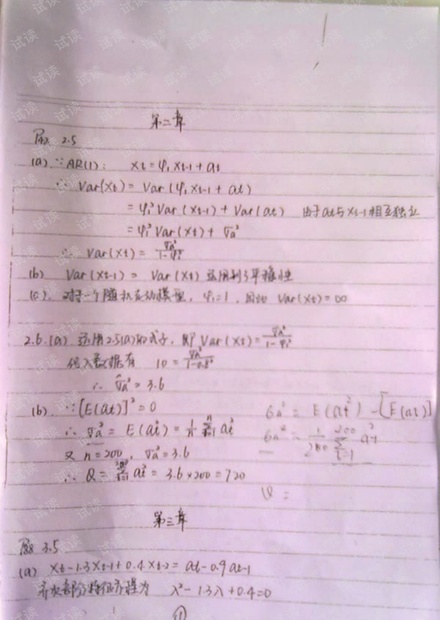 第二章
题 2.5
(a) ∵AR(1): Xt = φ₁Xt-1 + at
∴ Var(Xt) = Var(φ₁Xt-1 + at)
= φ₁² Var(Xt-1) + Var(at) 由于at与Xt-1相互独立
= φ₁² Var(Xt) + σa²
∴ Var(Xt) = σa²/(1-φ₁²)
(b) Var(Xt-1) = Var(Xt) 运用到了平稳性
(c) 对于一个随机游动模型, φ₁=1, 因此 Var(Xt) = ∞
2.6. (a) 运用2.5(a)的式子, 则 Var(Xt) = σa²/(1-φ₁²)
代入数据有 10 = σa²/(1-0.8²)
∴ σa² = 3.6
(b) ∵ [E(at)]² = 0
∴ σa² = E(at²) = 1/n Σ at²
又 n=200, σa²=3.6
∴ Q = Σ at² = 3.6×200 = 720
6a² = E(at²) - [E(at)]
6a² = 1/200 Σ at²
Q =
第三章
题 3.5
(a) Xt - 1.3Xt-1 + 0.4Xt-2 = at - 0.9at-1
齐次部分特征方程为 λ² - 1.3λ + 0.4 = 0
①
试读